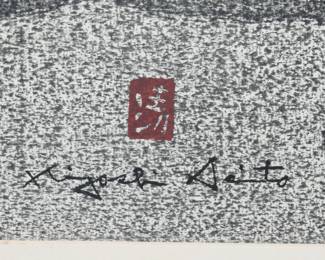 Kiyoshi Saito